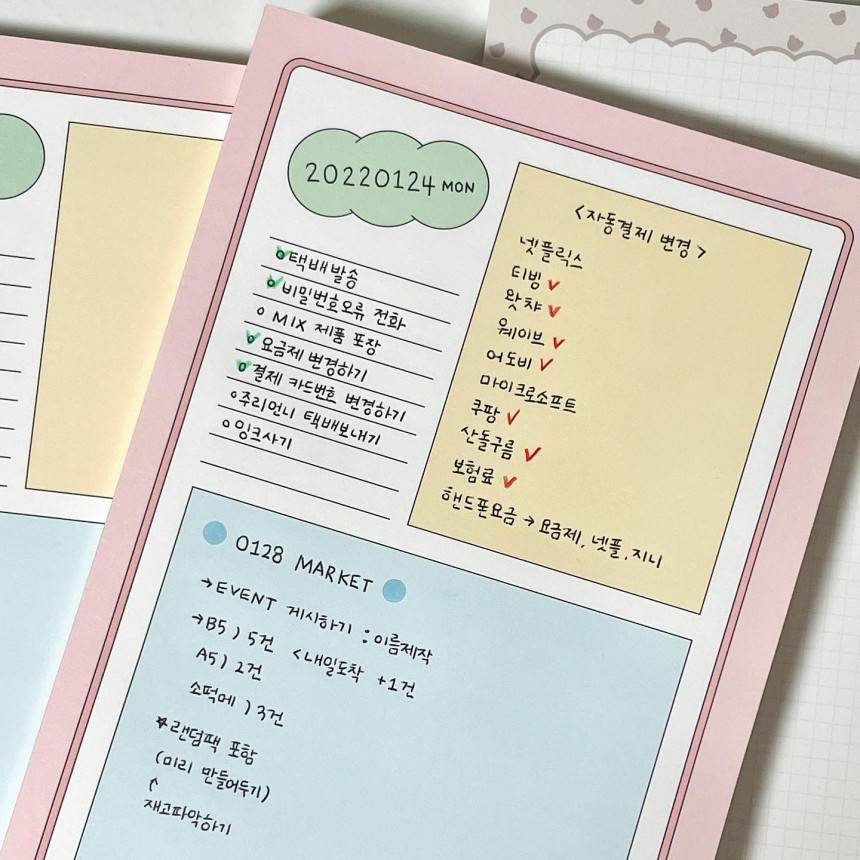 20220124 MON
택배발송
비밀번호오류 전화
MIX 제품 포장
요금제 변경하기
결제 카드번호 변경하기
주리언니 택배보내기
잉크사기
<자동결제 변경>
넷플릭스
티빙 ✓
왓챠 ✓
웨이브 ✓
어도비 ✓
마이크로소프트
쿠팡 ✓
산돌구름 ✓
보험료 ✓
핸드폰요금 → 요금제, 넷플, 지니
0128 MARKET
→ EVENT 게시하기 : 이름제작
→ B5 ) 5건 <내일도착 +1건
A5 ) 2건
소떡메 ) 3건
* 랜덤팩 포함
(미리 만들어두기)
↑
재고파악하기